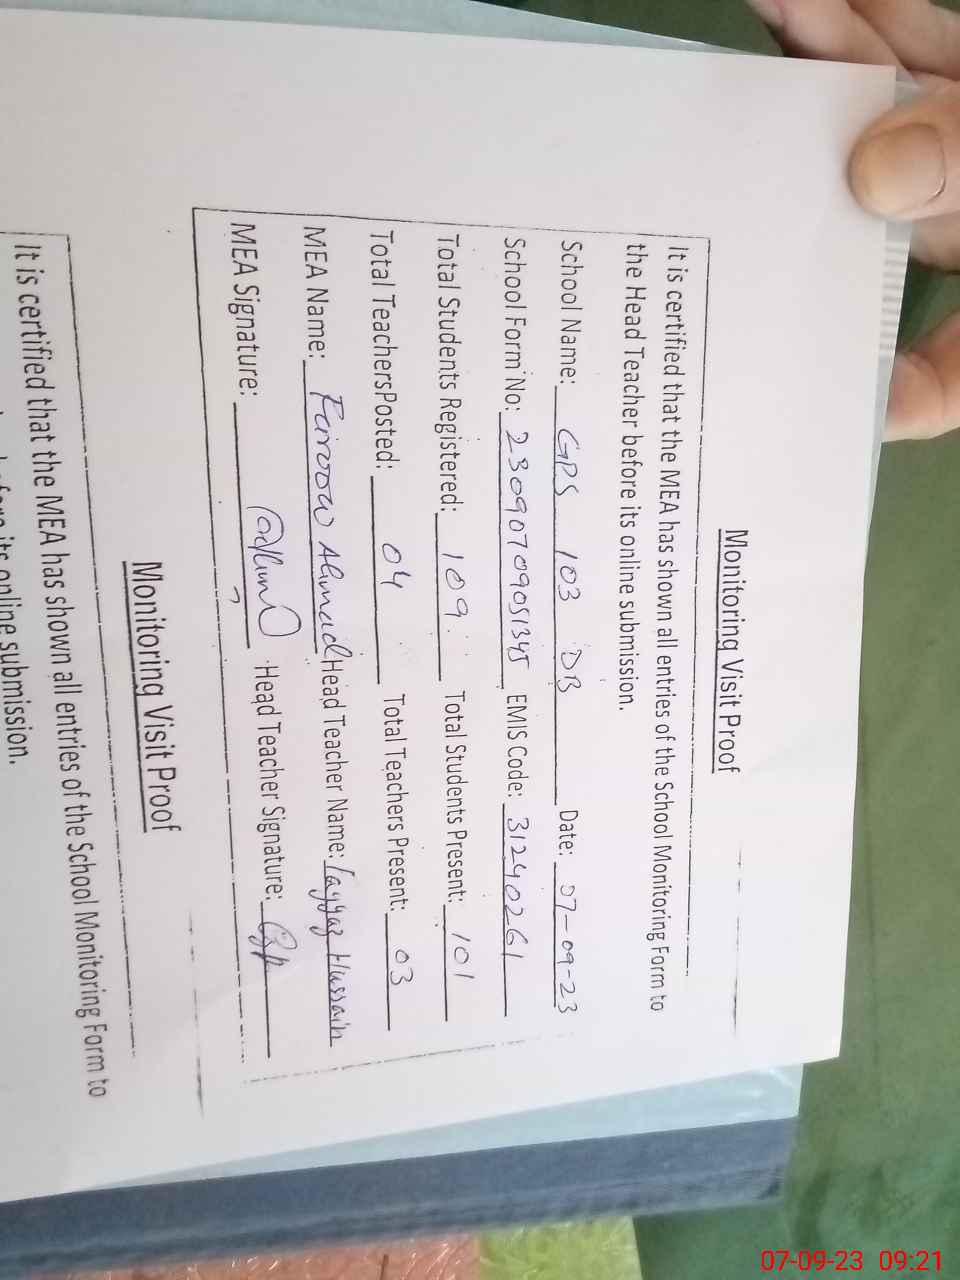 Monitoring Visit Proof
It is certified that the MEA has shown all entries of the School Monitoring Form to
the Head Teacher before its online submission.
School Name: GPS 103 DB Date: 07-09-23
School Form No: 23090709051345 EMIS Code: 31240261
Total Students Registered: 109 Total Students Present: 101
Total TeachersPosted: 04 Total Teachers Present: 03
MEA Name: Ahmad Head Teacher Name: Tayyaz Hussain
MEA Signature: Head Teacher Signature:
Monitoring Visit Proof
It is certified that the MEA has shown all entries of the School Monitoring Form to
before its online submission.
07-09-23 09:21